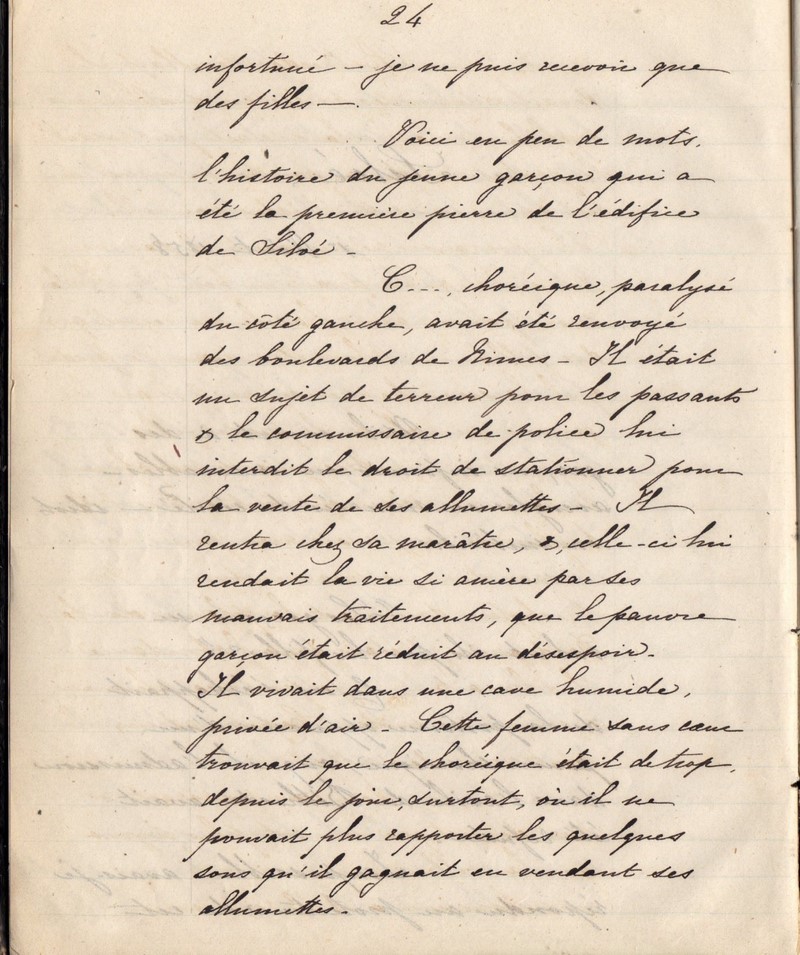 24
infortuné – je ne puis recevoir que
des filles —.
Voici en peu de mots,
l'histoire du jeune garçon qui a
été la première pierre de l'édifice
de Siloé –
C..., choréique, paralysé
du côté gauche, avait été renvoyé
des boulevards de Nimes – Il était
un sujet de terreur pour les passants
& le commissaire de police lui
interdit le droit de stationner pour
la vente de ses allumettes – Il
rentra chez sa marâtre, &, celle-ci lui
rendait la vie si amère par ses
mauvais traitements, que le pauvre
garçon était réduit au désespoir.
Il vivait dans une cave humide,
privée d'air – Cette femme sans cœur
trouvait que le choréique était de trop,
depuis le jour, surtout, où il ne
pouvait plus rapporter les quelques
sous qu'il gagnait en vendant ses
allumettes.